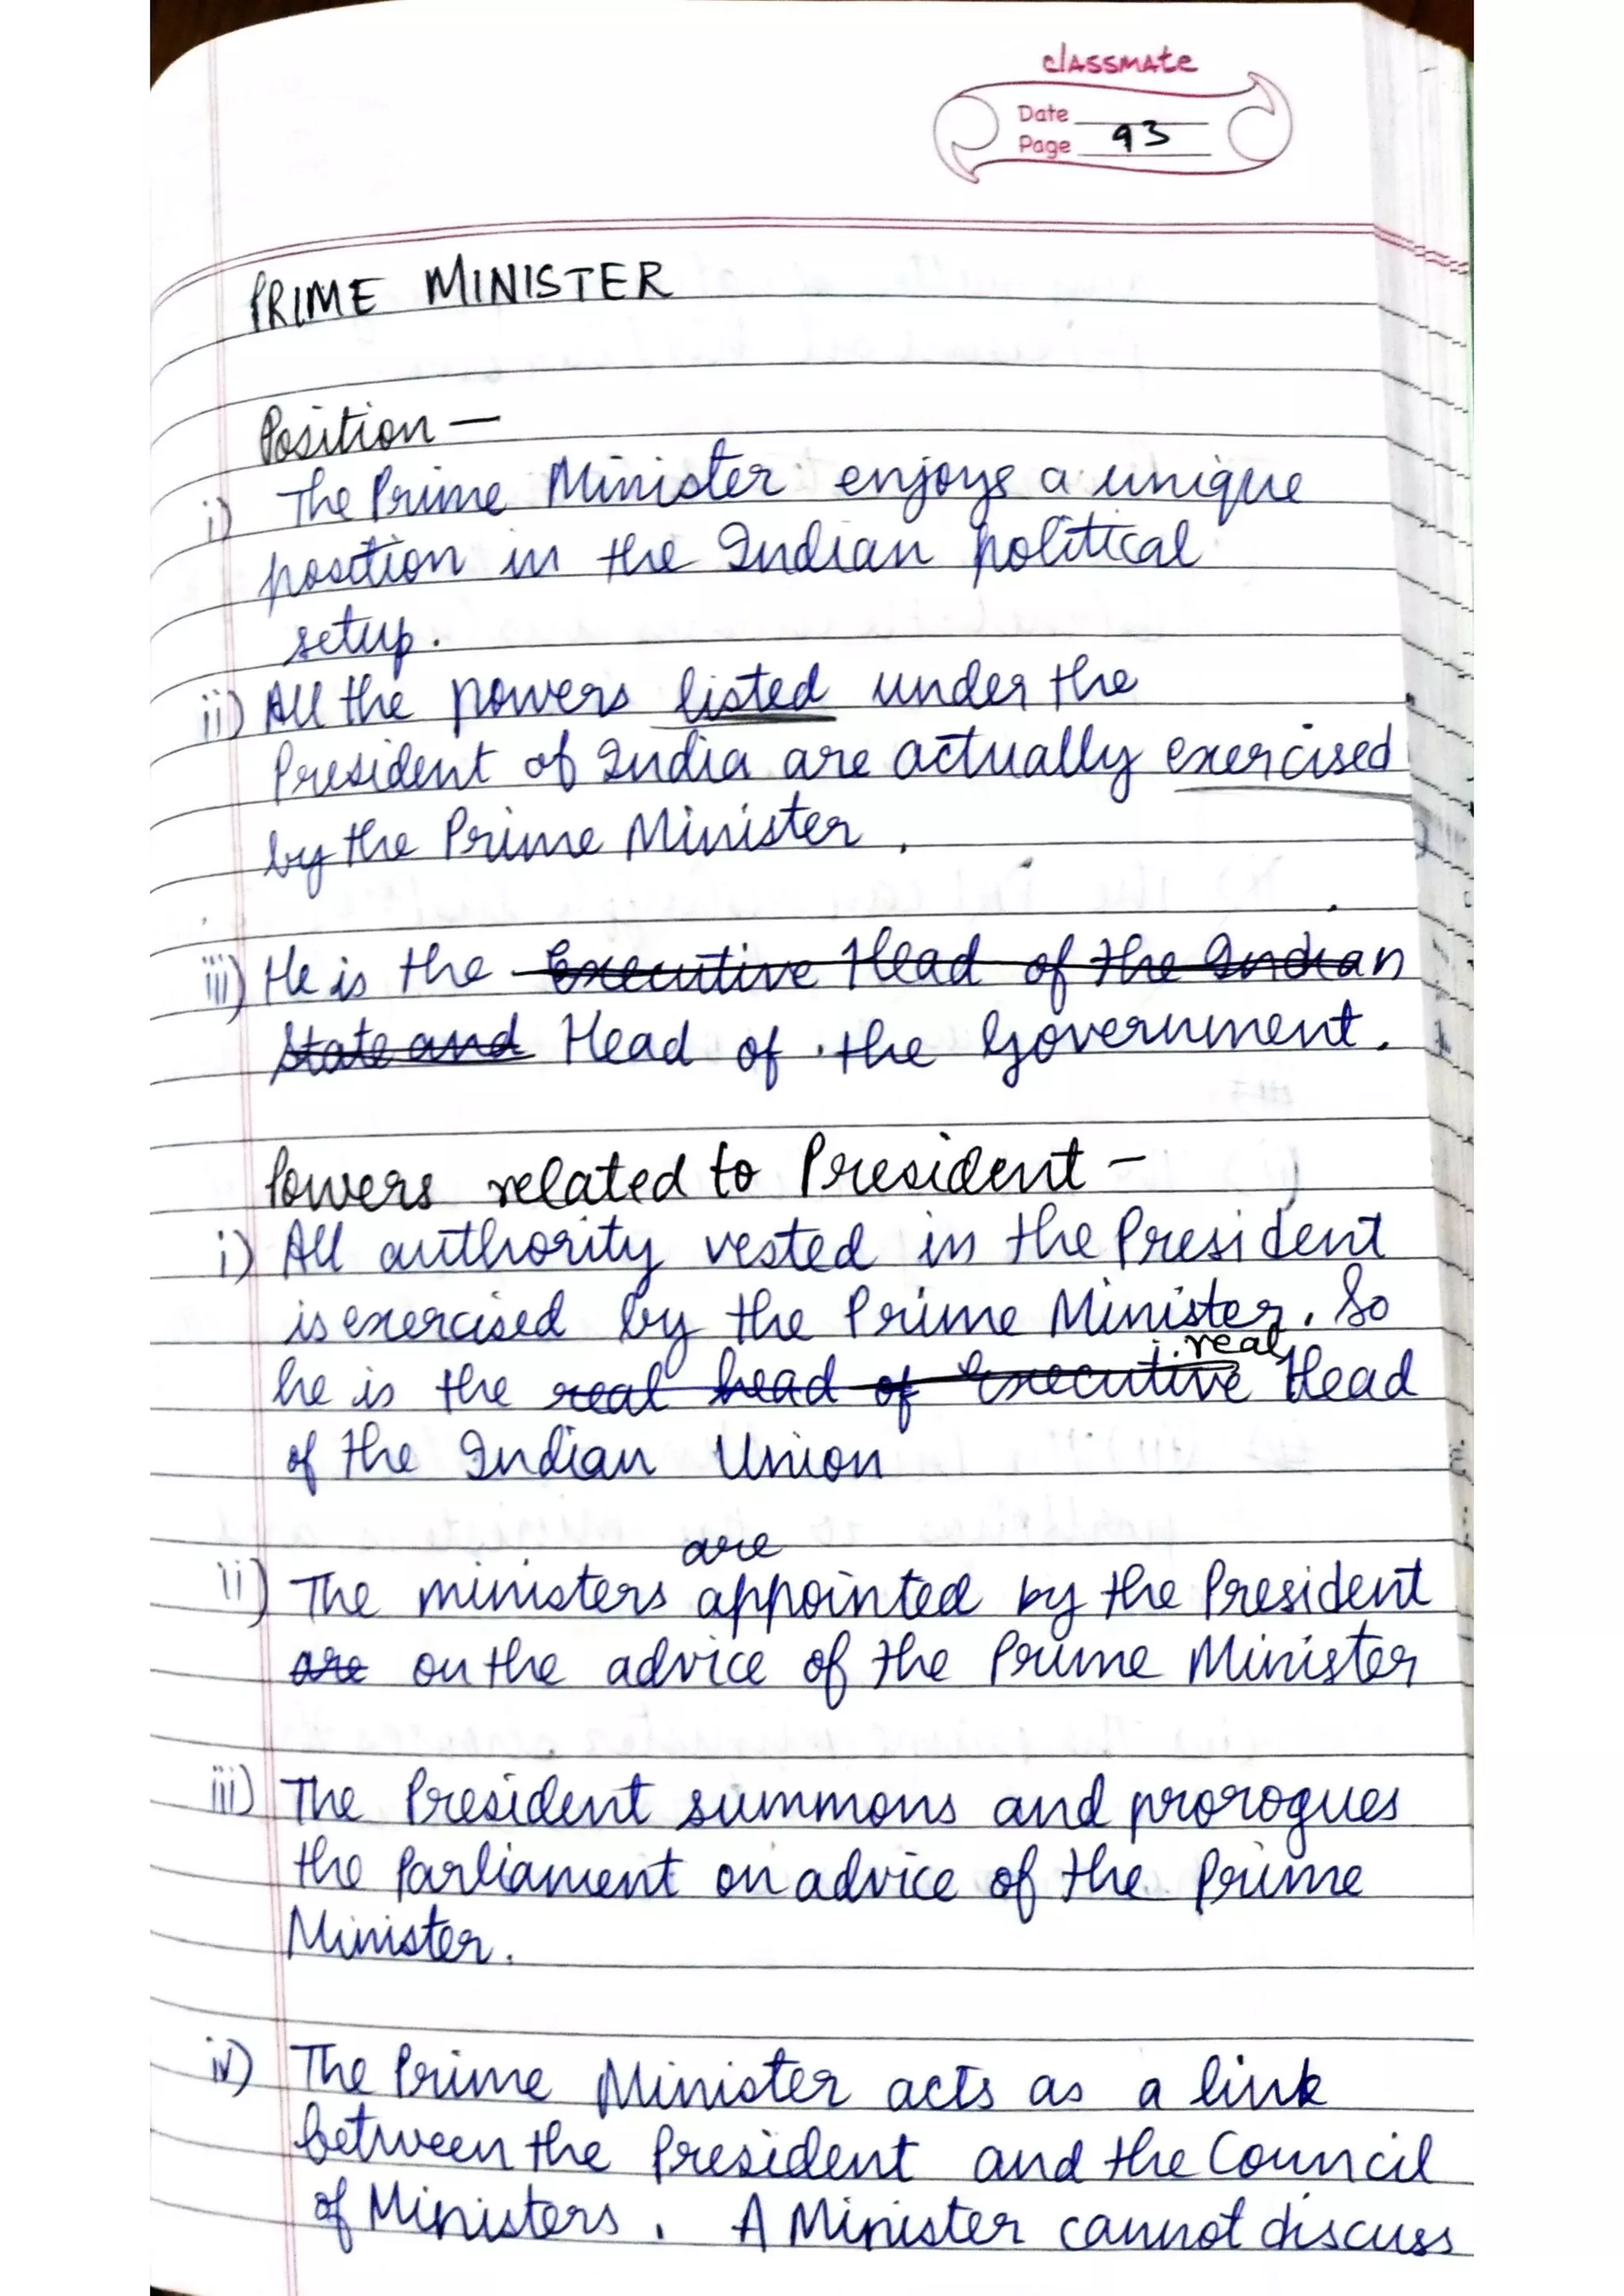 classmate
Date
Page 93
PRIME MINISTER
Position —
i) The Prime Minister enjoys a unique
position in the Indian political
setup.
ii) All the powers listed under the
President of India are actually exercised
by the Prime Minister.
iii) He is the Executive Head of the Indian
State and Head of the Government.
Powers related to President -
i) All authority vested in the President
is exercised by the Prime Minister. So
real
he is the real head of Executive Head
of the Indian Union
are
ii) The ministers appointed by the President
are on the advice of the Prime Minister
iii) The President summons and prorogues
the Parliament on advice of the Prime
Minister.
iv) The Prime Minister acts as a link
between the President and the Council
of Ministers. A Minister cannot discuss